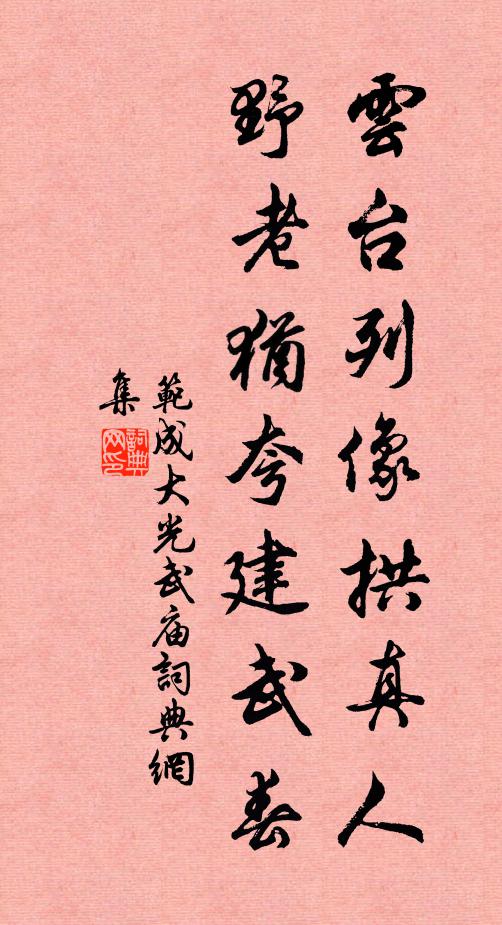 雲台列像拱真人
野老猶夸建武春
範成大光武庙詞典網
集
詞典
网印